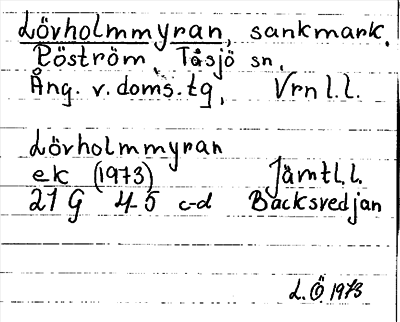 Lövholmmyran, sankmark.
Röström, Tåsjö sn.
Ång. v. doms. tg, Vrn l.l.
Lövholmmyran
ek (1973) Jämtl.l.
21 G 4-5 c-d Backsvedjan
L.Ö 1973